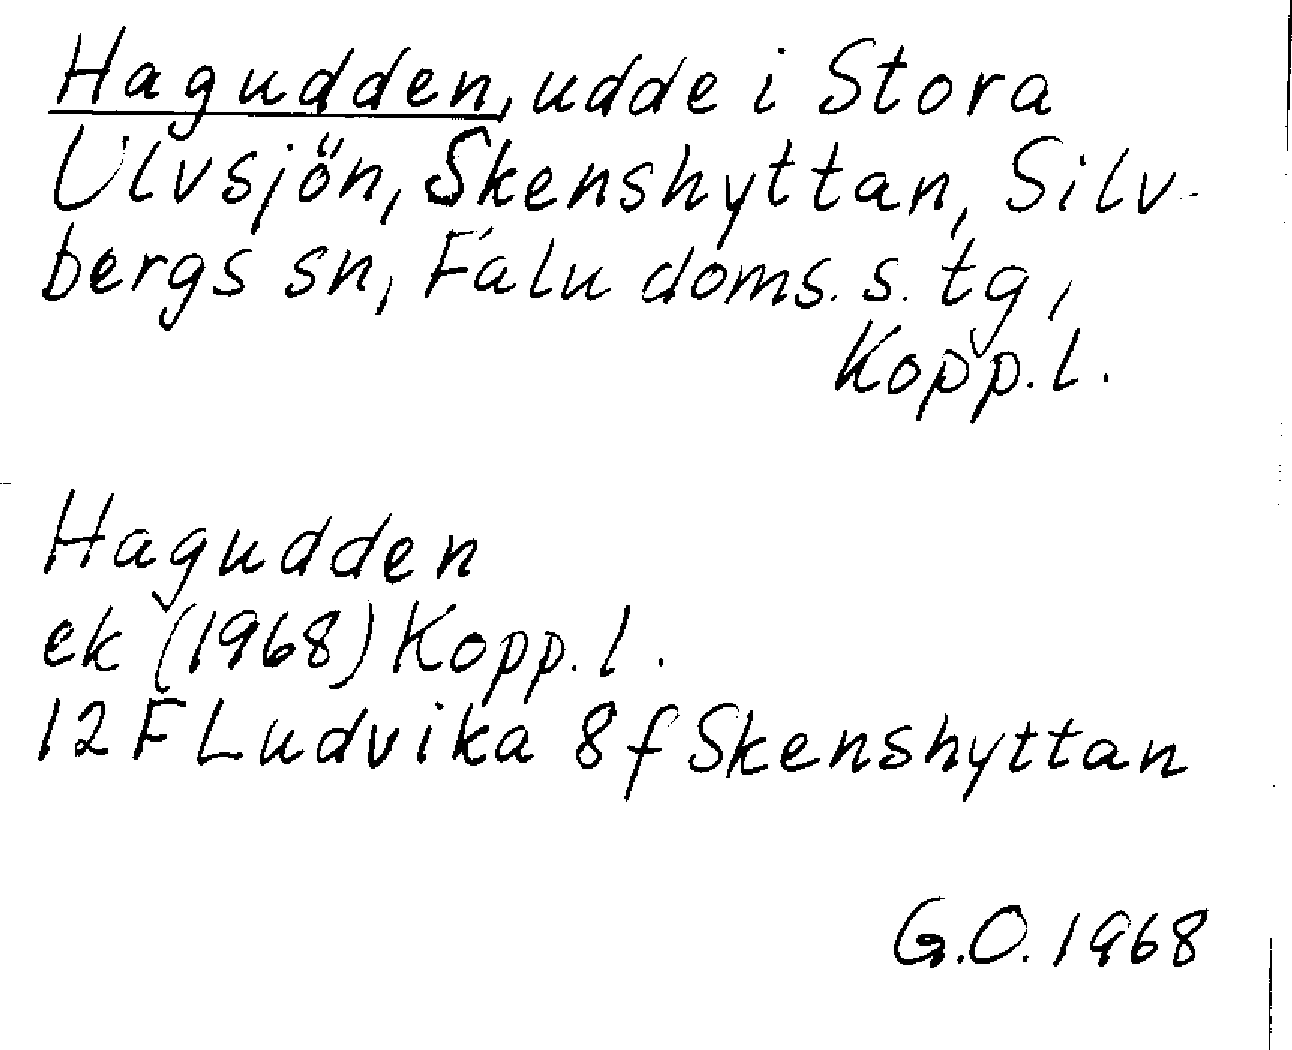 Hagudden, udde i Stora
Ulvsjön, Skenshyttan, Silv-
bergs sn, Falu doms. s. tg,
Kopp. l.
Hagudden
ek (1968) Kopp. l.
12 F Ludvika 8 f Skenshyttan
G.O. 1968